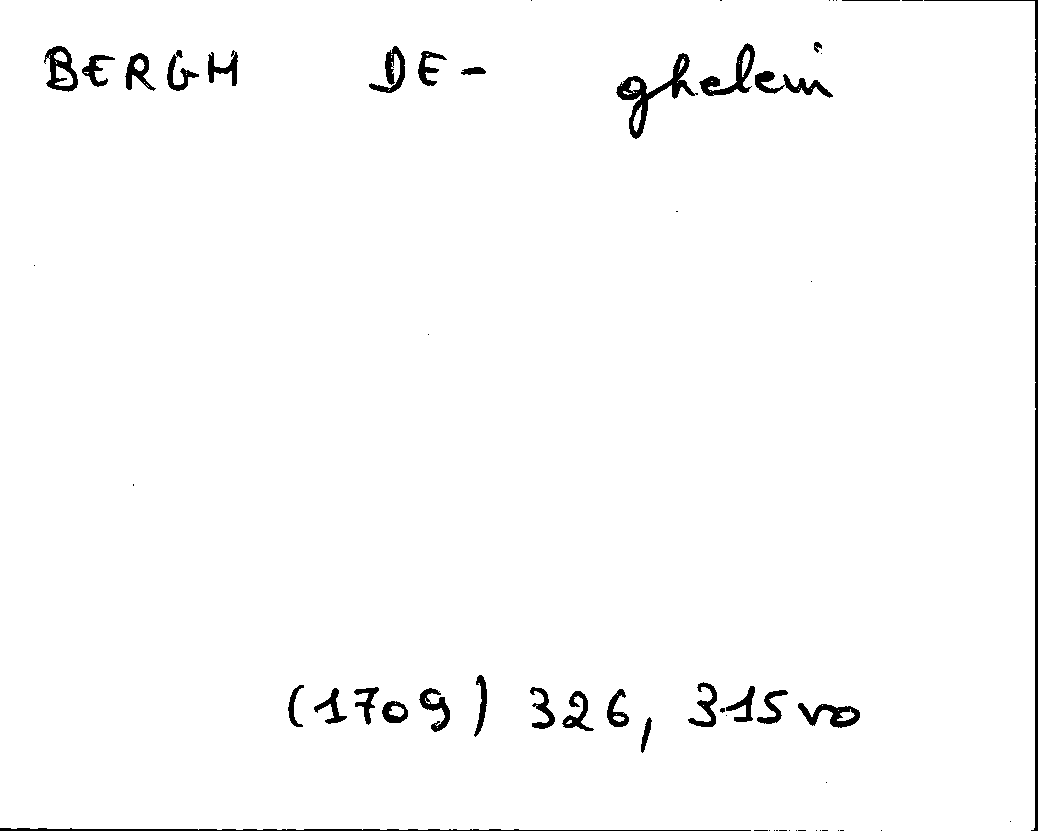 BERGH DE- ghelein
(1709) 326, 315 vo